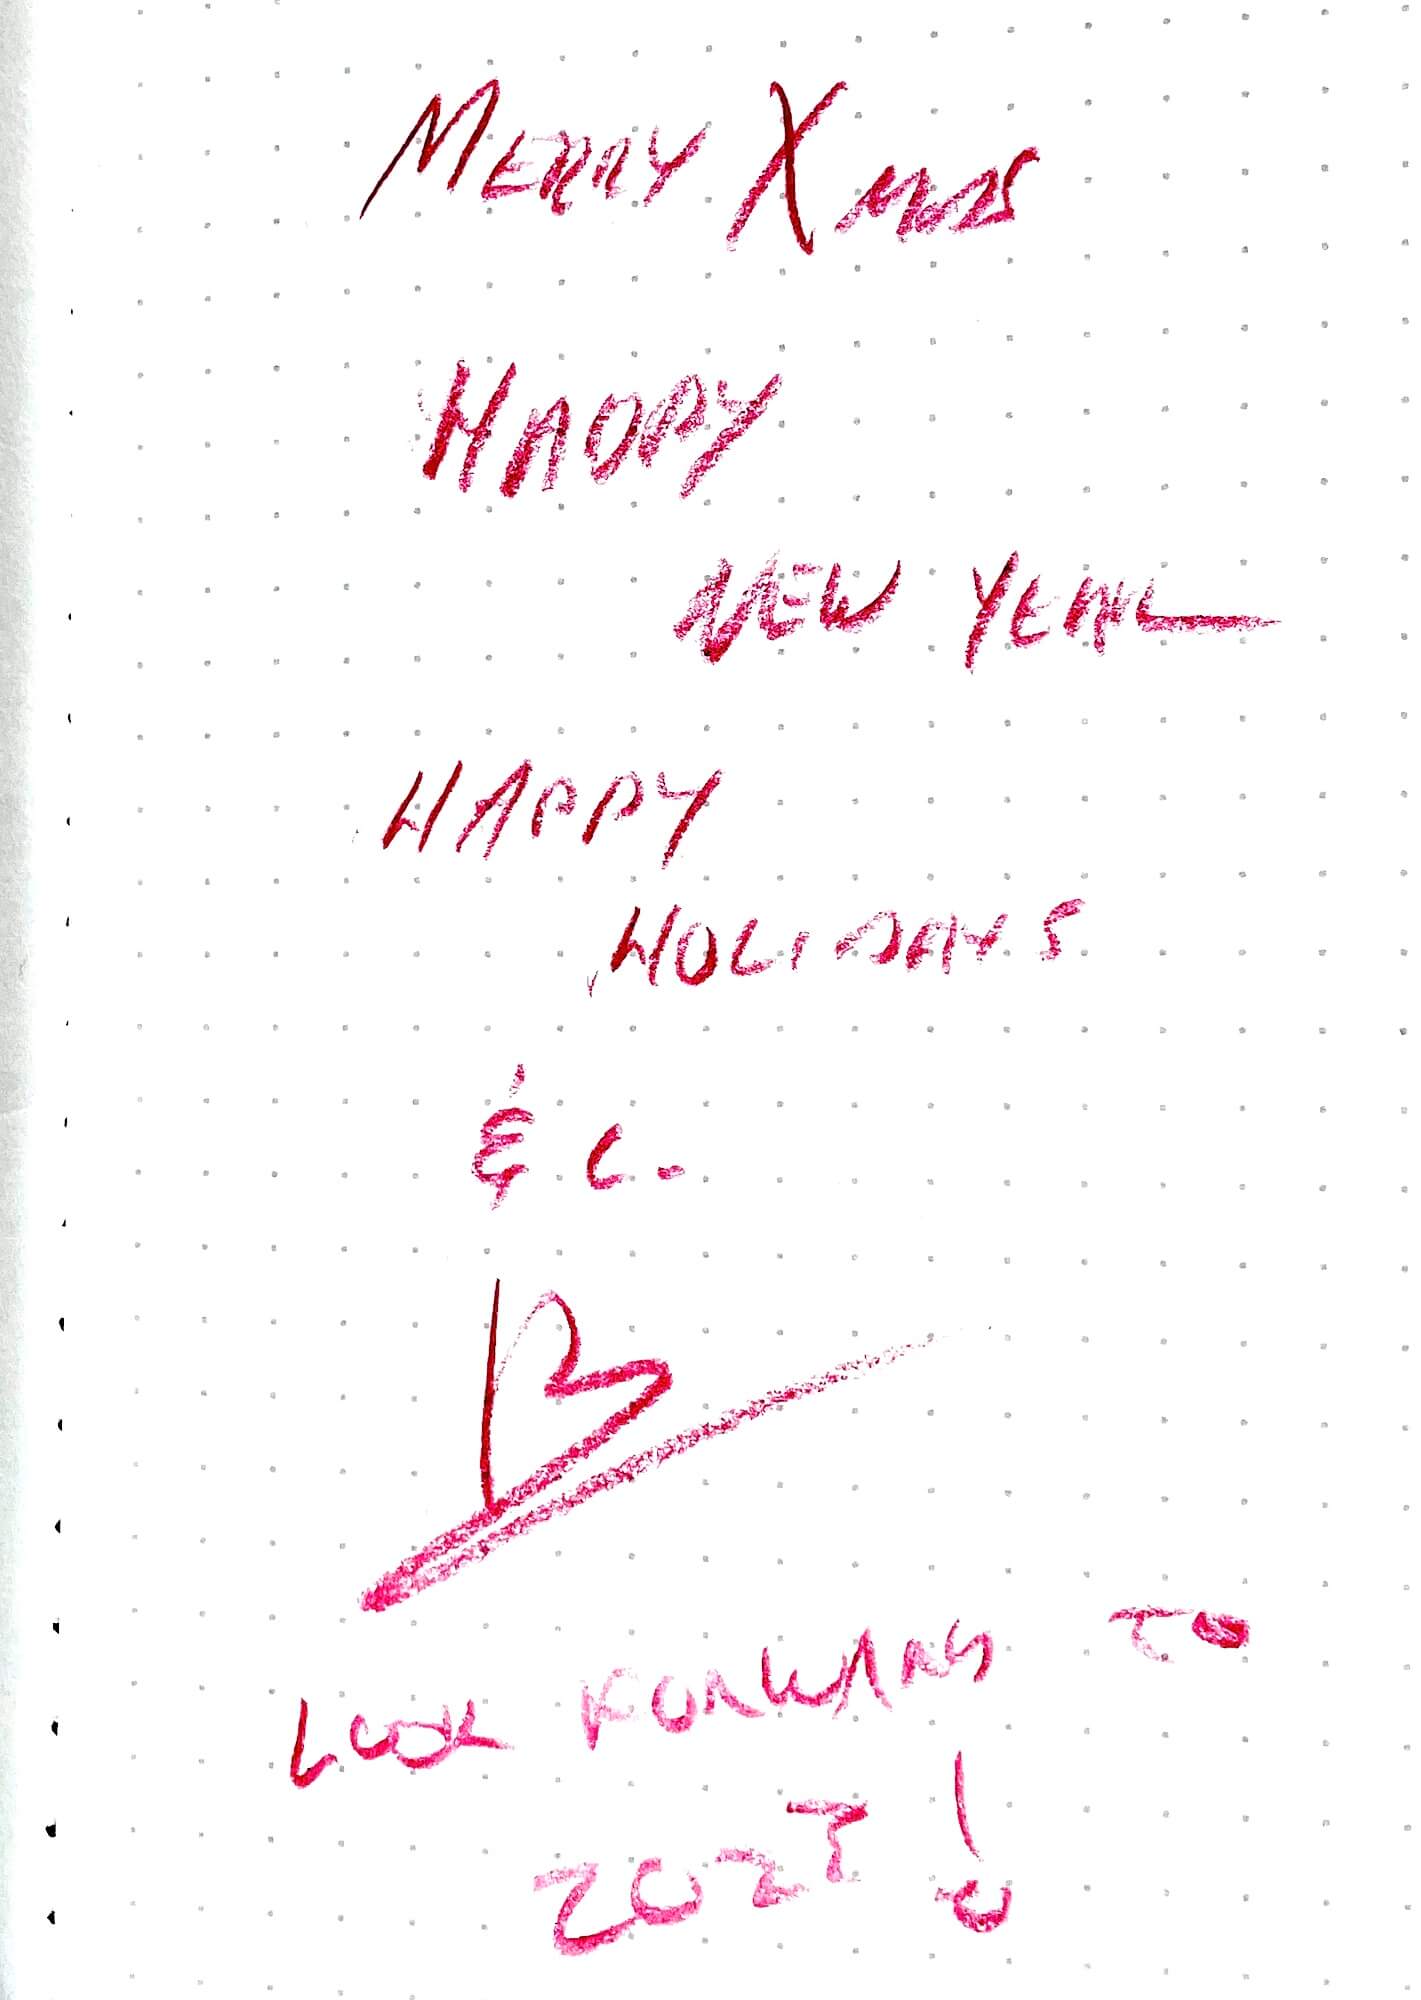 MERRY XMAS
HAPPY
NEW YEAR
HAPPY
HOLIDAYS
& C.
B
LOOK FORWARD TO
2023!